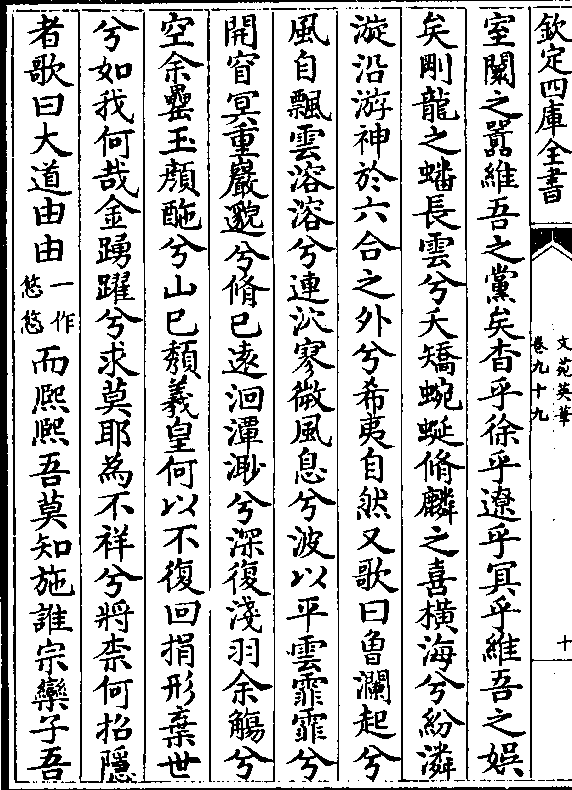 欽定四庫全書
文苑英華
卷九十九
十
室闃之囂維吾之黨矣杳乎徐乎遼乎冥乎維吾之娯
矣剛龍之蟠長雲兮夭矯蜿蜒脩麟之喜橫海兮紛潾
漩沿游神於六合之外兮希夷自然又歌曰魯瀾起兮
風自飄雲溶溶兮連泬寥微風息兮波以平雲霏霏兮
開窅冥重巖邈兮脩已逺洄潭渺兮深復淺羽余觴兮
空余罍玉顔酏兮山已頽羲皇何以不復回捐形棄世
兮如我何哉金踴躍兮求莫耶為不祥兮將柰何招隱
者歌曰大道由由一作悠悠而熈熈吾莫知施誰宗欒子吾